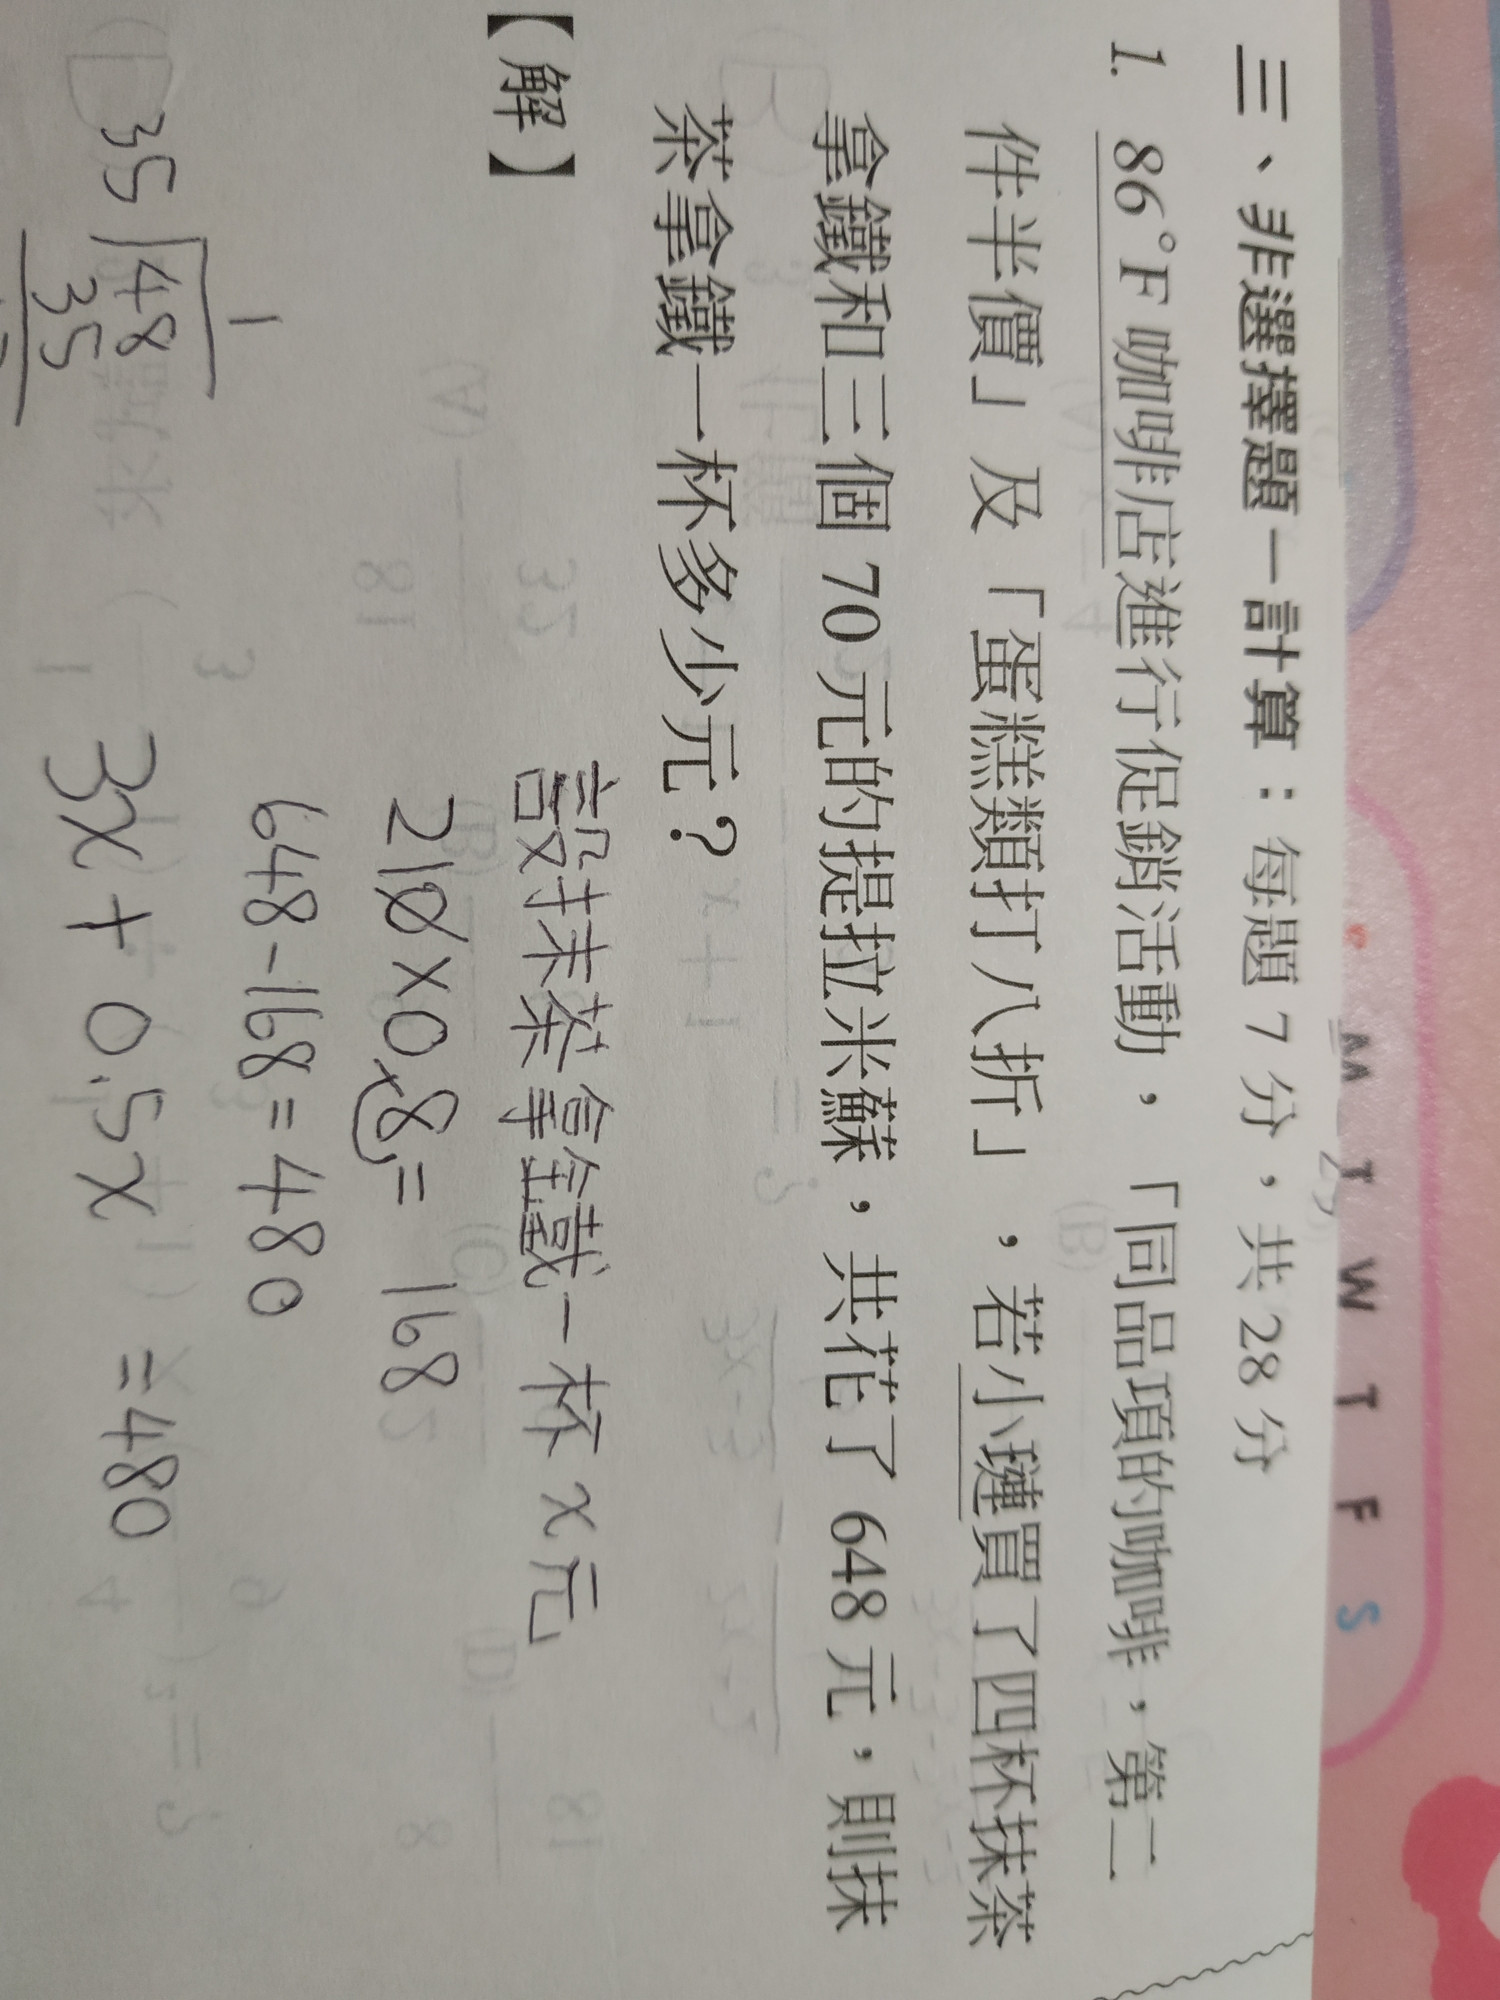 M T W T F S
三、非選擇題－計算：每題 7 分，共 28 分
1. 86°F 咖啡店進行促銷活動，「同品項的咖啡，第二
件半價」及「蛋糕類打八折」，若小璉買了四杯抹茶
拿鐵和三個 70 元的提拉米蘇，共花了 648 元，則抹
茶拿鐵一杯多少元？
【解】
設抹茶拿鐵一杯 x 元
210×0.8=168
648-168=480
3x+0.5x=480
1
35 48
35